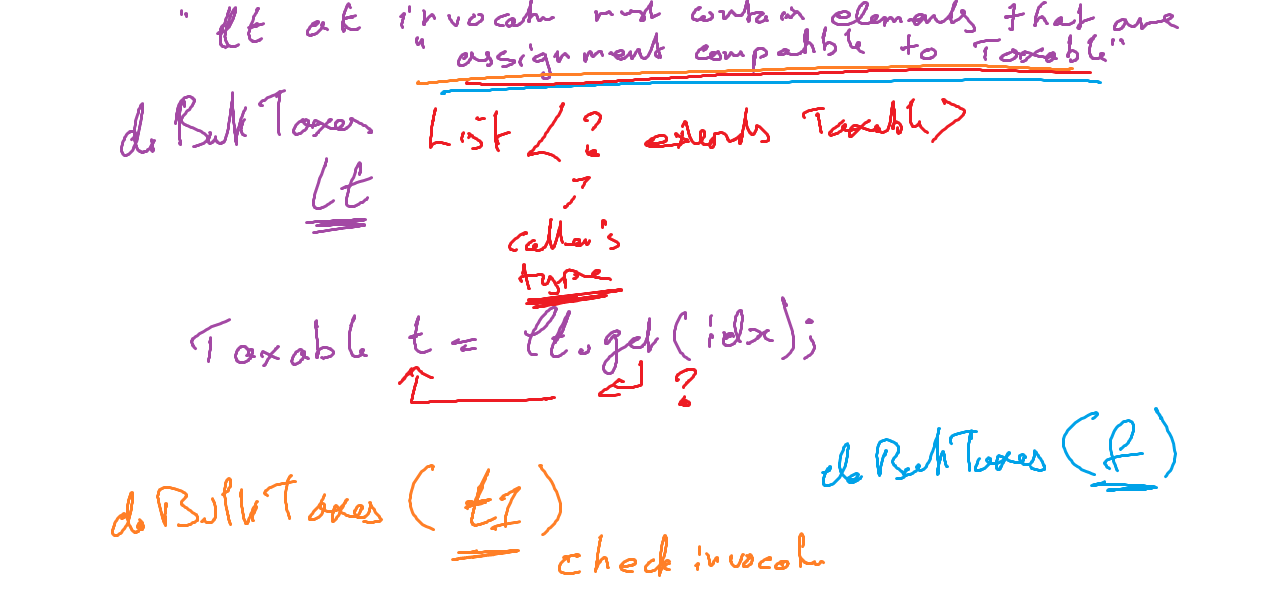 " lt at invocatn must contain elements that are
"assignment compatible to Taxable"
doBulkTaxes List <? extends Taxable>
lt
caller's
type
Taxable t = lt.get(idx);
?
doBulkTaxes(f)
doBulkTaxes(t1)
check invocatn